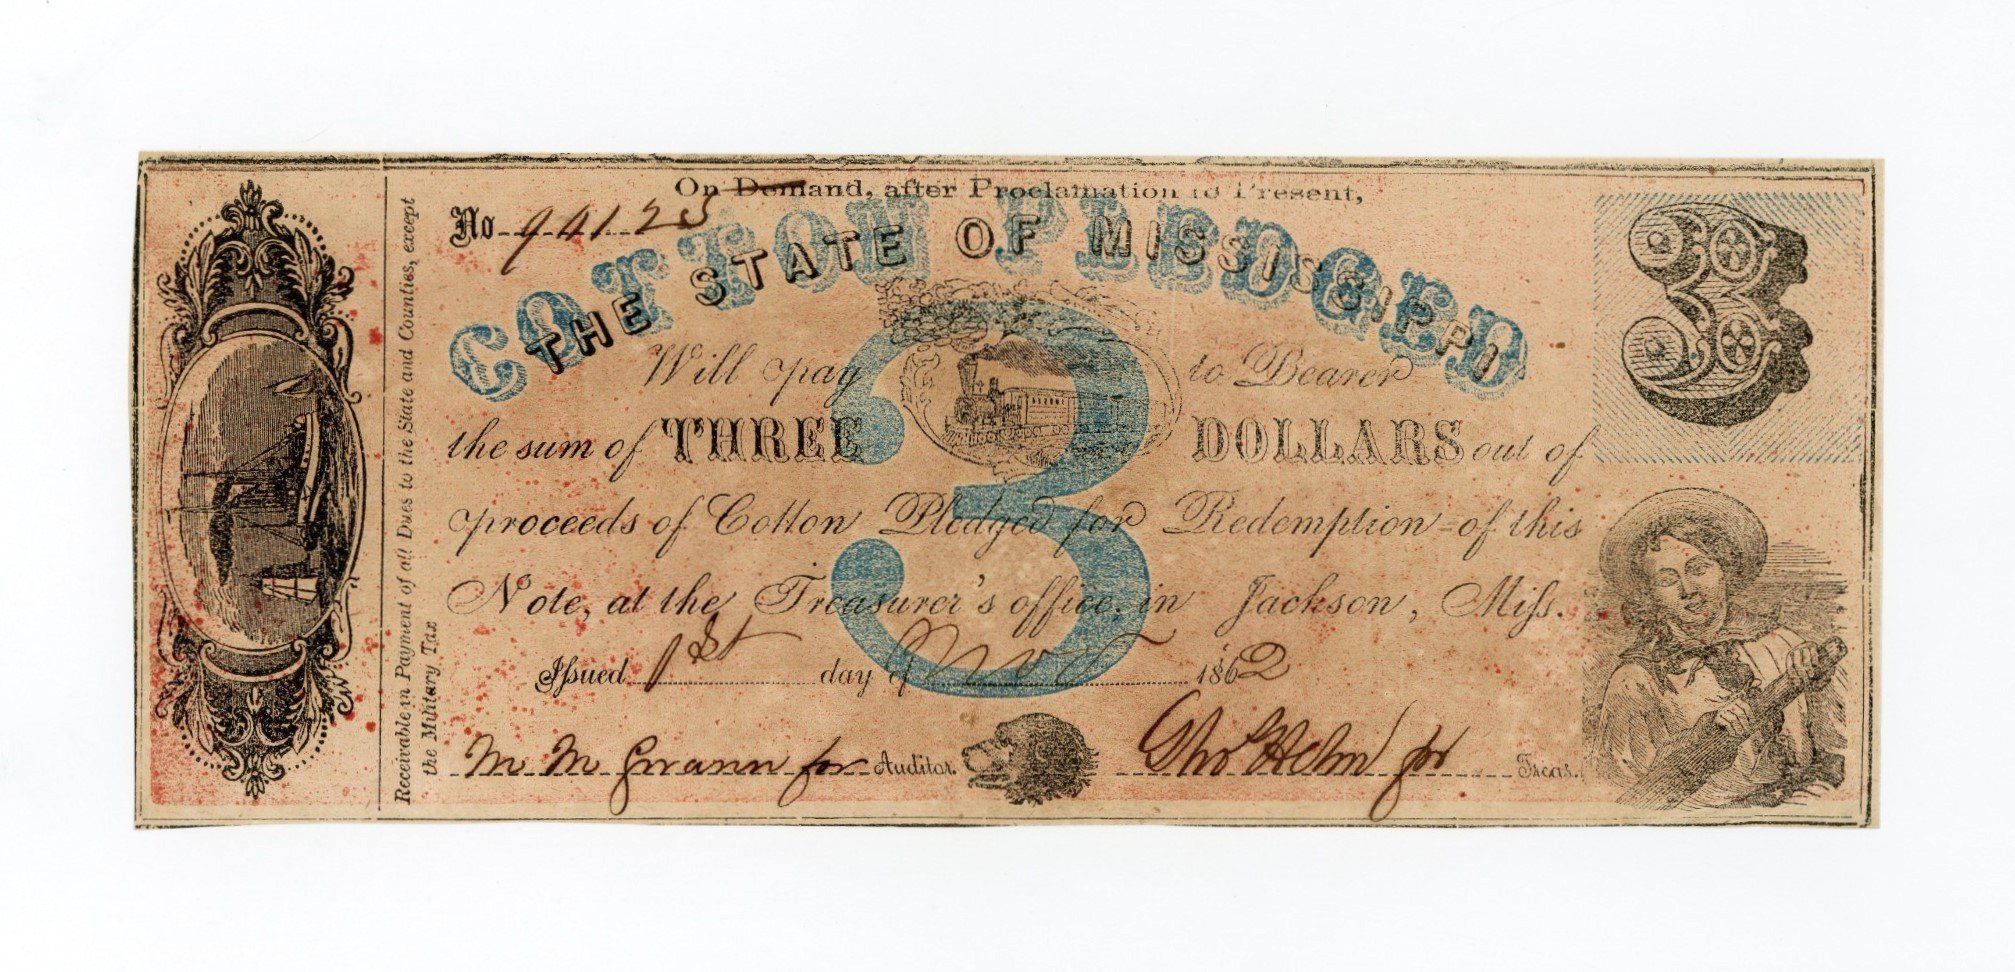 On Demand, after Proclamation to Present,
No 94125
COTTON PLEDGED
THE STATE OF MISSISSIPPI
3
Will pay to Bearer
the sum of THREE DOLLARS out of
proceeds of Cotton Pledged for Redemption of this
Note, at the Treasurer's office, in Jackson, Miss.
Issued 1st day of Nov 1862
M M for Auditor.
Tho Helm for Treas.
3
Receivable in Payment of all Dues to the State and Counties, except
the Military Tax